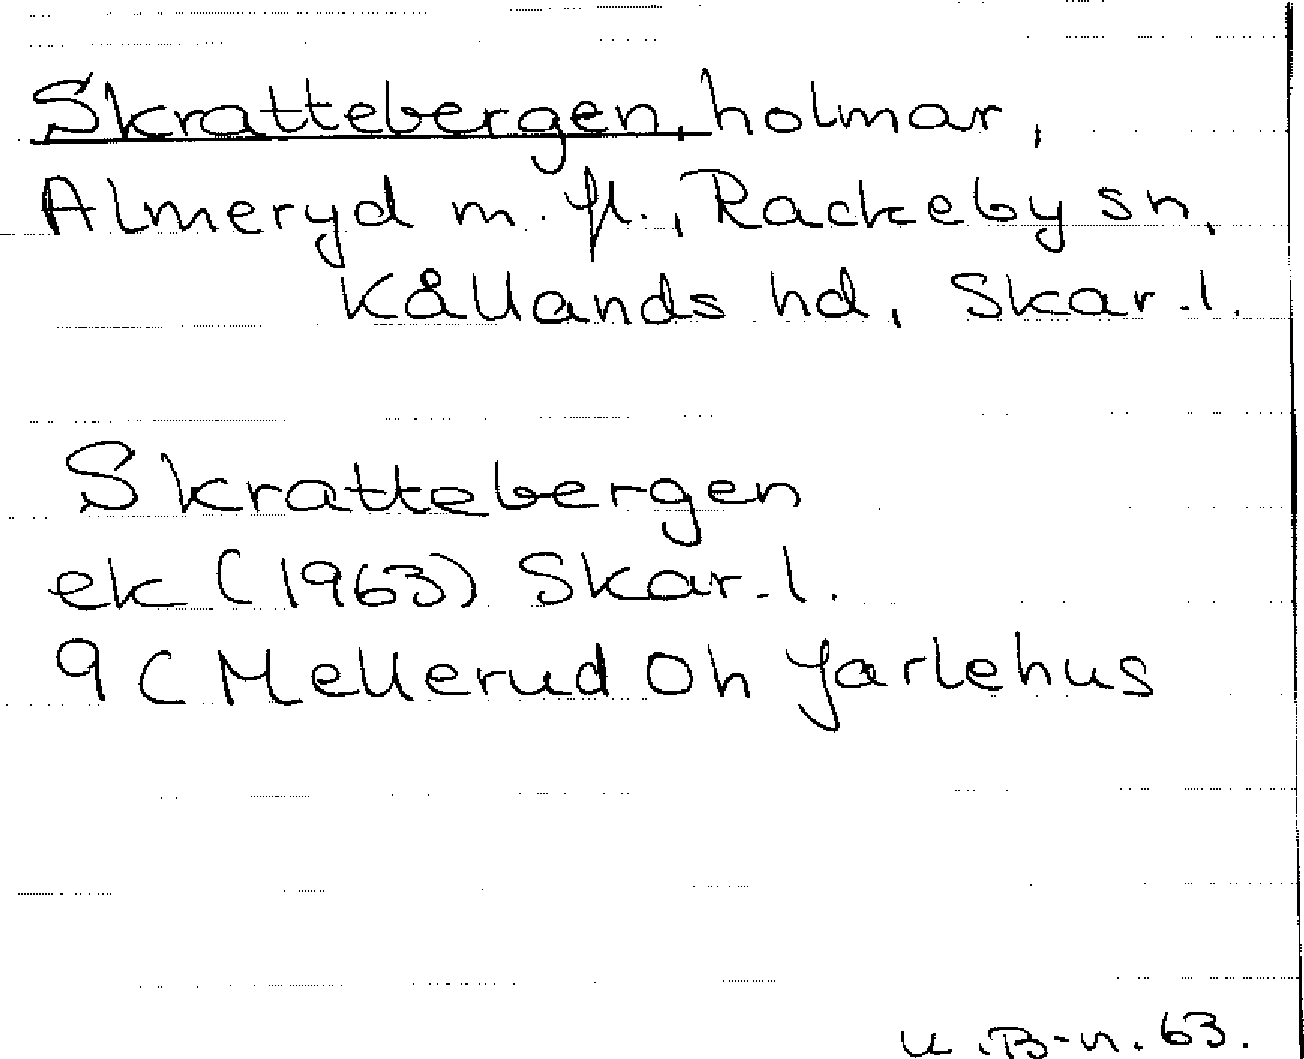 Skrattebergen, holmar,
Almeryd m. fl., Rackeby sn,
Kållands hd, Skar.l.
Skrattebergen
ek (1963) Skar.l.
9 C Mellerud Oh Jarlehus
U.B-n. 63.